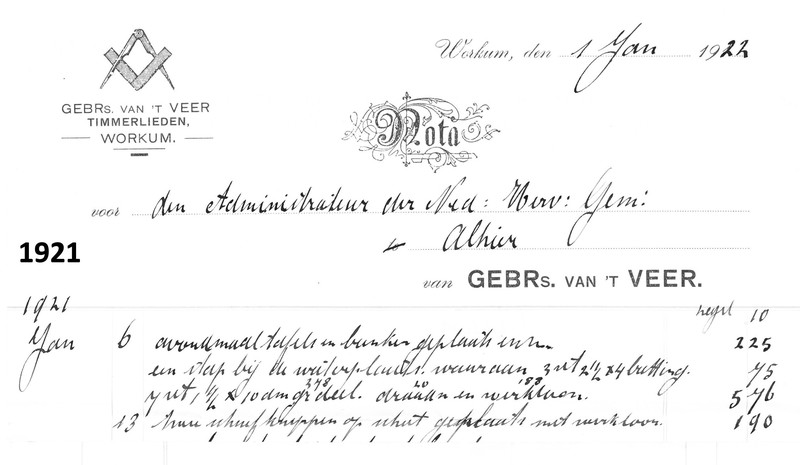 Workum, den 1 Jan 1922
GEBRs. VAN 'T VEER
TIMMERLIEDEN,
WORKUM.
Nota
voor den Administrateur der Ned: Herv: Gem:
te Alhier
1921
van GEBRs. VAN 'T VEER.
1921
zegel 10
Jan 6 avondmaaltafels en banken geplaatst enz. 225
een stap bij de waterplaats. waaraan 3 vt 2½ x 4 batting. 75
7 vt, 1½ x 10 dm gr deel. draaan en werkloon. 576
13 op schut geplaatst met werkloon. 190